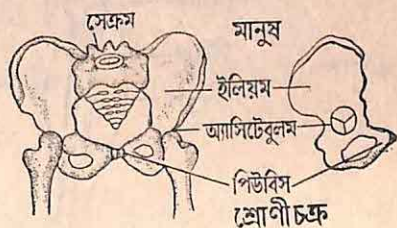 সেক্রম
মানুষ
ইলিয়ম
অ্যাসিটেবুলম
পিউবিস
শ্রোণীচক্র